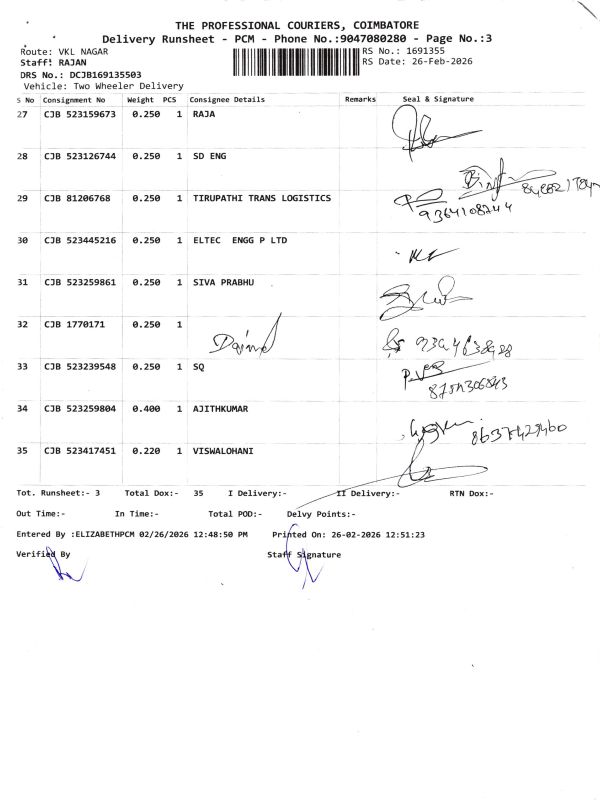 THE PROFESSIONAL COURIERS, COIMBATORE
Delivery Runsheet - PCM - Phone No.:9047080280 - Page No.:3
Route: VKL NAGAR RS No.: 1691355
Staff: RAJAN RS Date: 26-Feb-2026
DRS No.: DCJB169135503
Vehicle: Two Wheeler Delivery
S No Consignment No Weight PCS Consignee Details Remarks Seal & Signature
27 CJB 523159673 0.250 1 RAJA
28 CJB 523126744 0.250 1 SD ENG
29 CJB 81206768 0.250 1 TIRUPATHI TRANS LOGISTICS
9364108244
30 CJB 523445216 0.250 1 ELTEC ENGG P LTD
31 CJB 523259861 0.250 1 SIVA PRABHU
32 CJB 1770171 0.250 1
33 CJB 523239548 0.250 1 SQ
34 CJB 523259804 0.400 1 AJITHKUMAR
35 CJB 523417451 0.220 1 VISWALOHANI
Tot. Runsheet:- 3 Total Dox:- 35 I Delivery:- II Delivery:- RTN Dox:-
Out Time:- In Time:- Total POD:- Delvy Points:-
Entered By :ELIZABETHPCM 02/26/2026 12:48:50 PM Printed On: 26-02-2026 12:51:23
Verified By Staff Signature